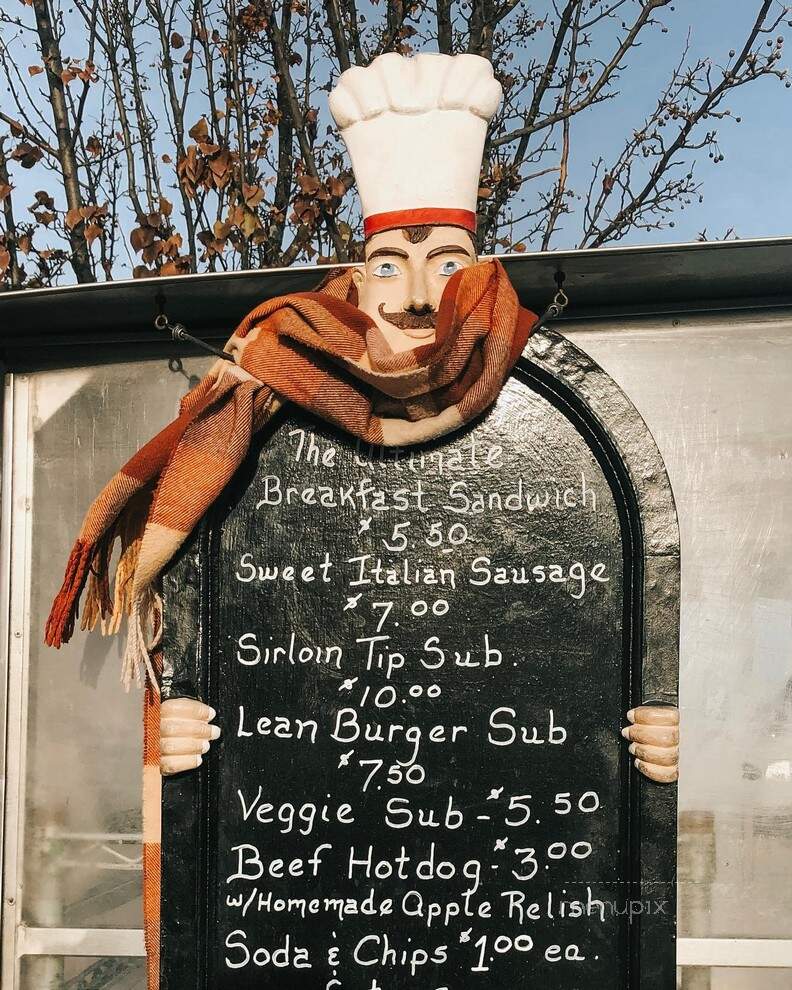 The Ultimate
Breakfast Sandwich
$5.50
Sweet Italian Sausage
$7.00
Sirloin Tip Sub.
$10.00
Lean Burger Sub
$7.50
Veggie Sub - $5.50
Beef Hotdog - $3.00
w/Homemade Apple Relish
menupix
Soda & Chips $1.00 ea.